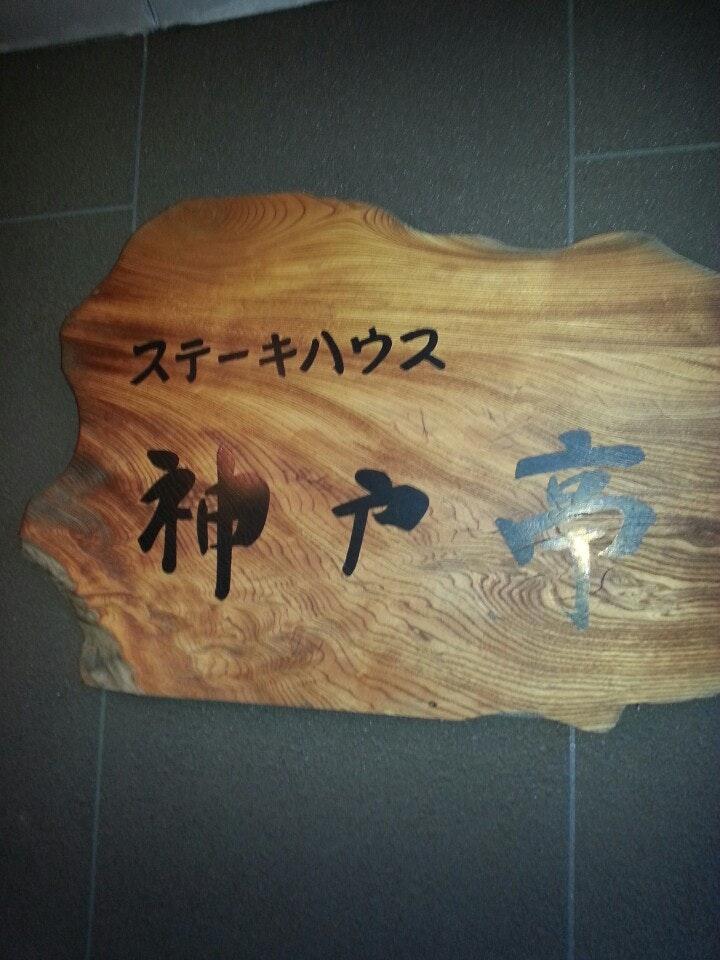 ステーキハウス
神戸亭